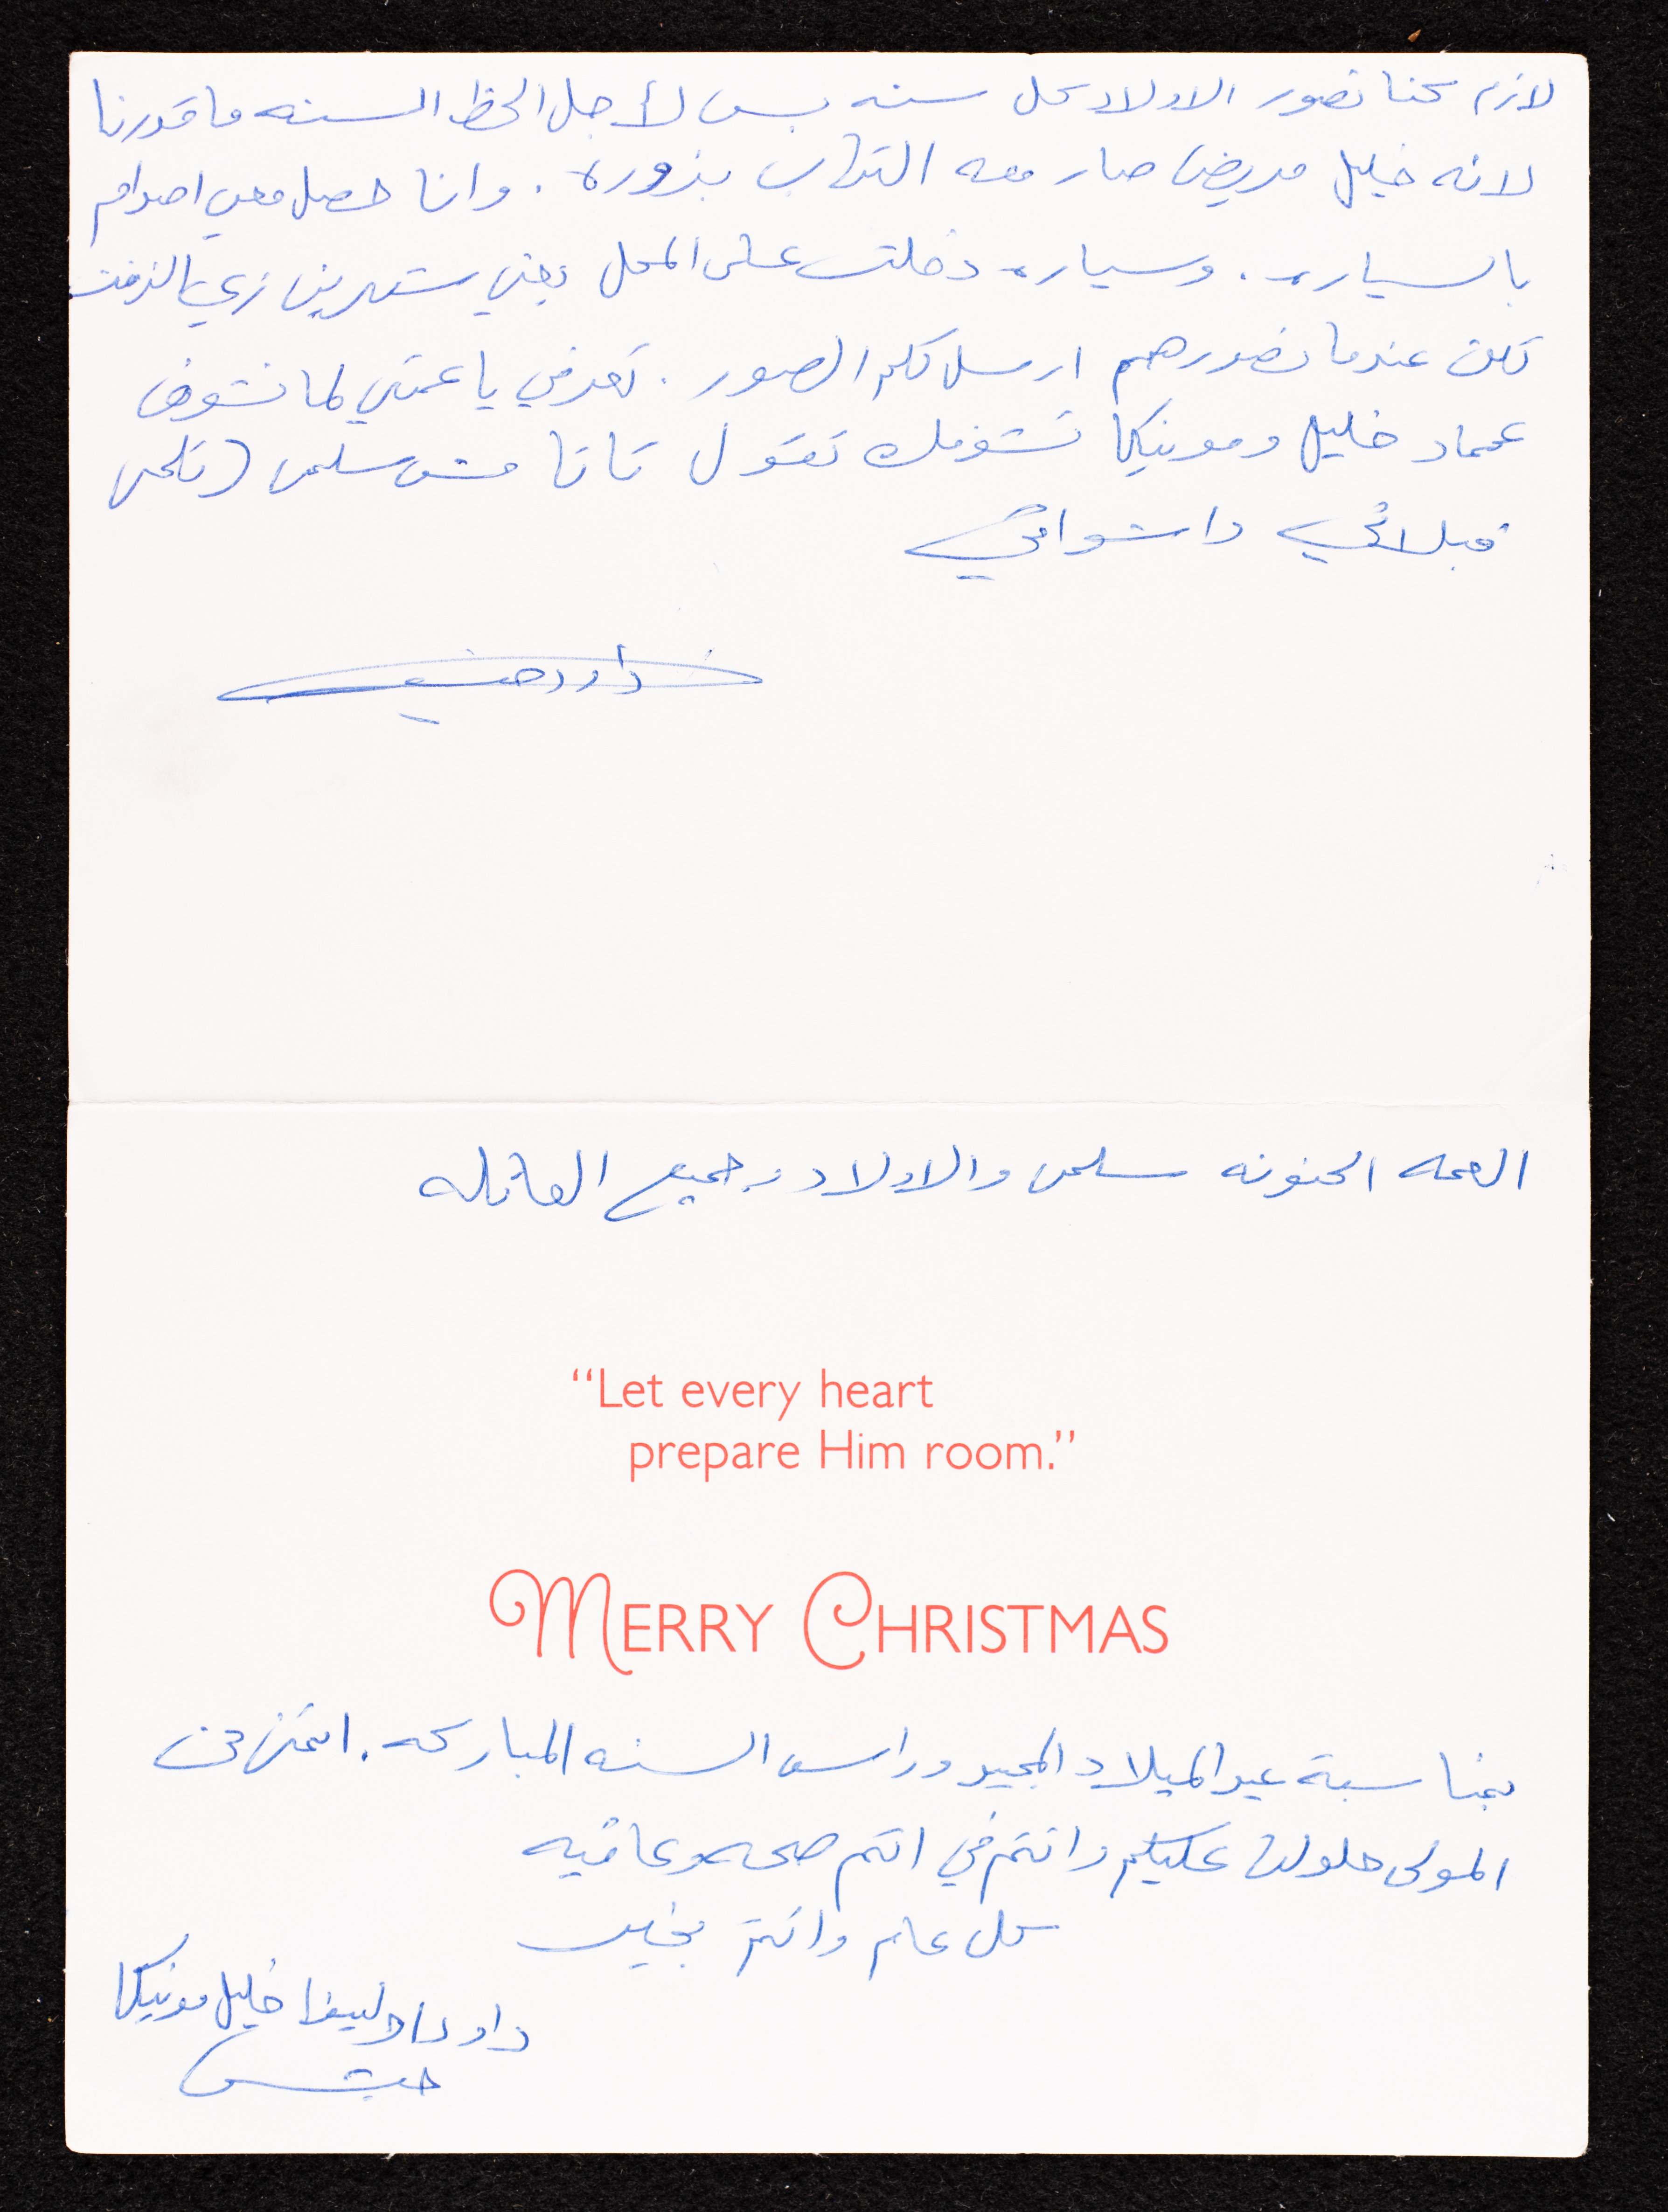 لازم كنا نصور الاولاد كل سنه بس لأجل الحظ السنه ما قدرنا
لانه خليل مريض صار معه التهاب بزوره. وانا حصل معي اصدام
بالسياره. وسياره دخلت على المحل يعني شهرين زي الزفت
لكن عندما نصورهم ارسل لكم الصور. تعرفي يا عمتي لما نشوف
عماد خليل ومونيكا تشوفك تقول تاتا مش سلمى (تلحس
قبلاتي واشواقي
داود
العمه الحنونه سلمى والاولاد وجميع العائله
“Let every heart
prepare Him room.”
MERRY CHRISTMAS
بمناسبة عيد الميلاد المجيد وراس السنه المباركه. اتمنى من
المولى حلولها عليكم وانتم في اتم صحه وعافيه
كل عام وانتم بخير
داود خليل مونيكا